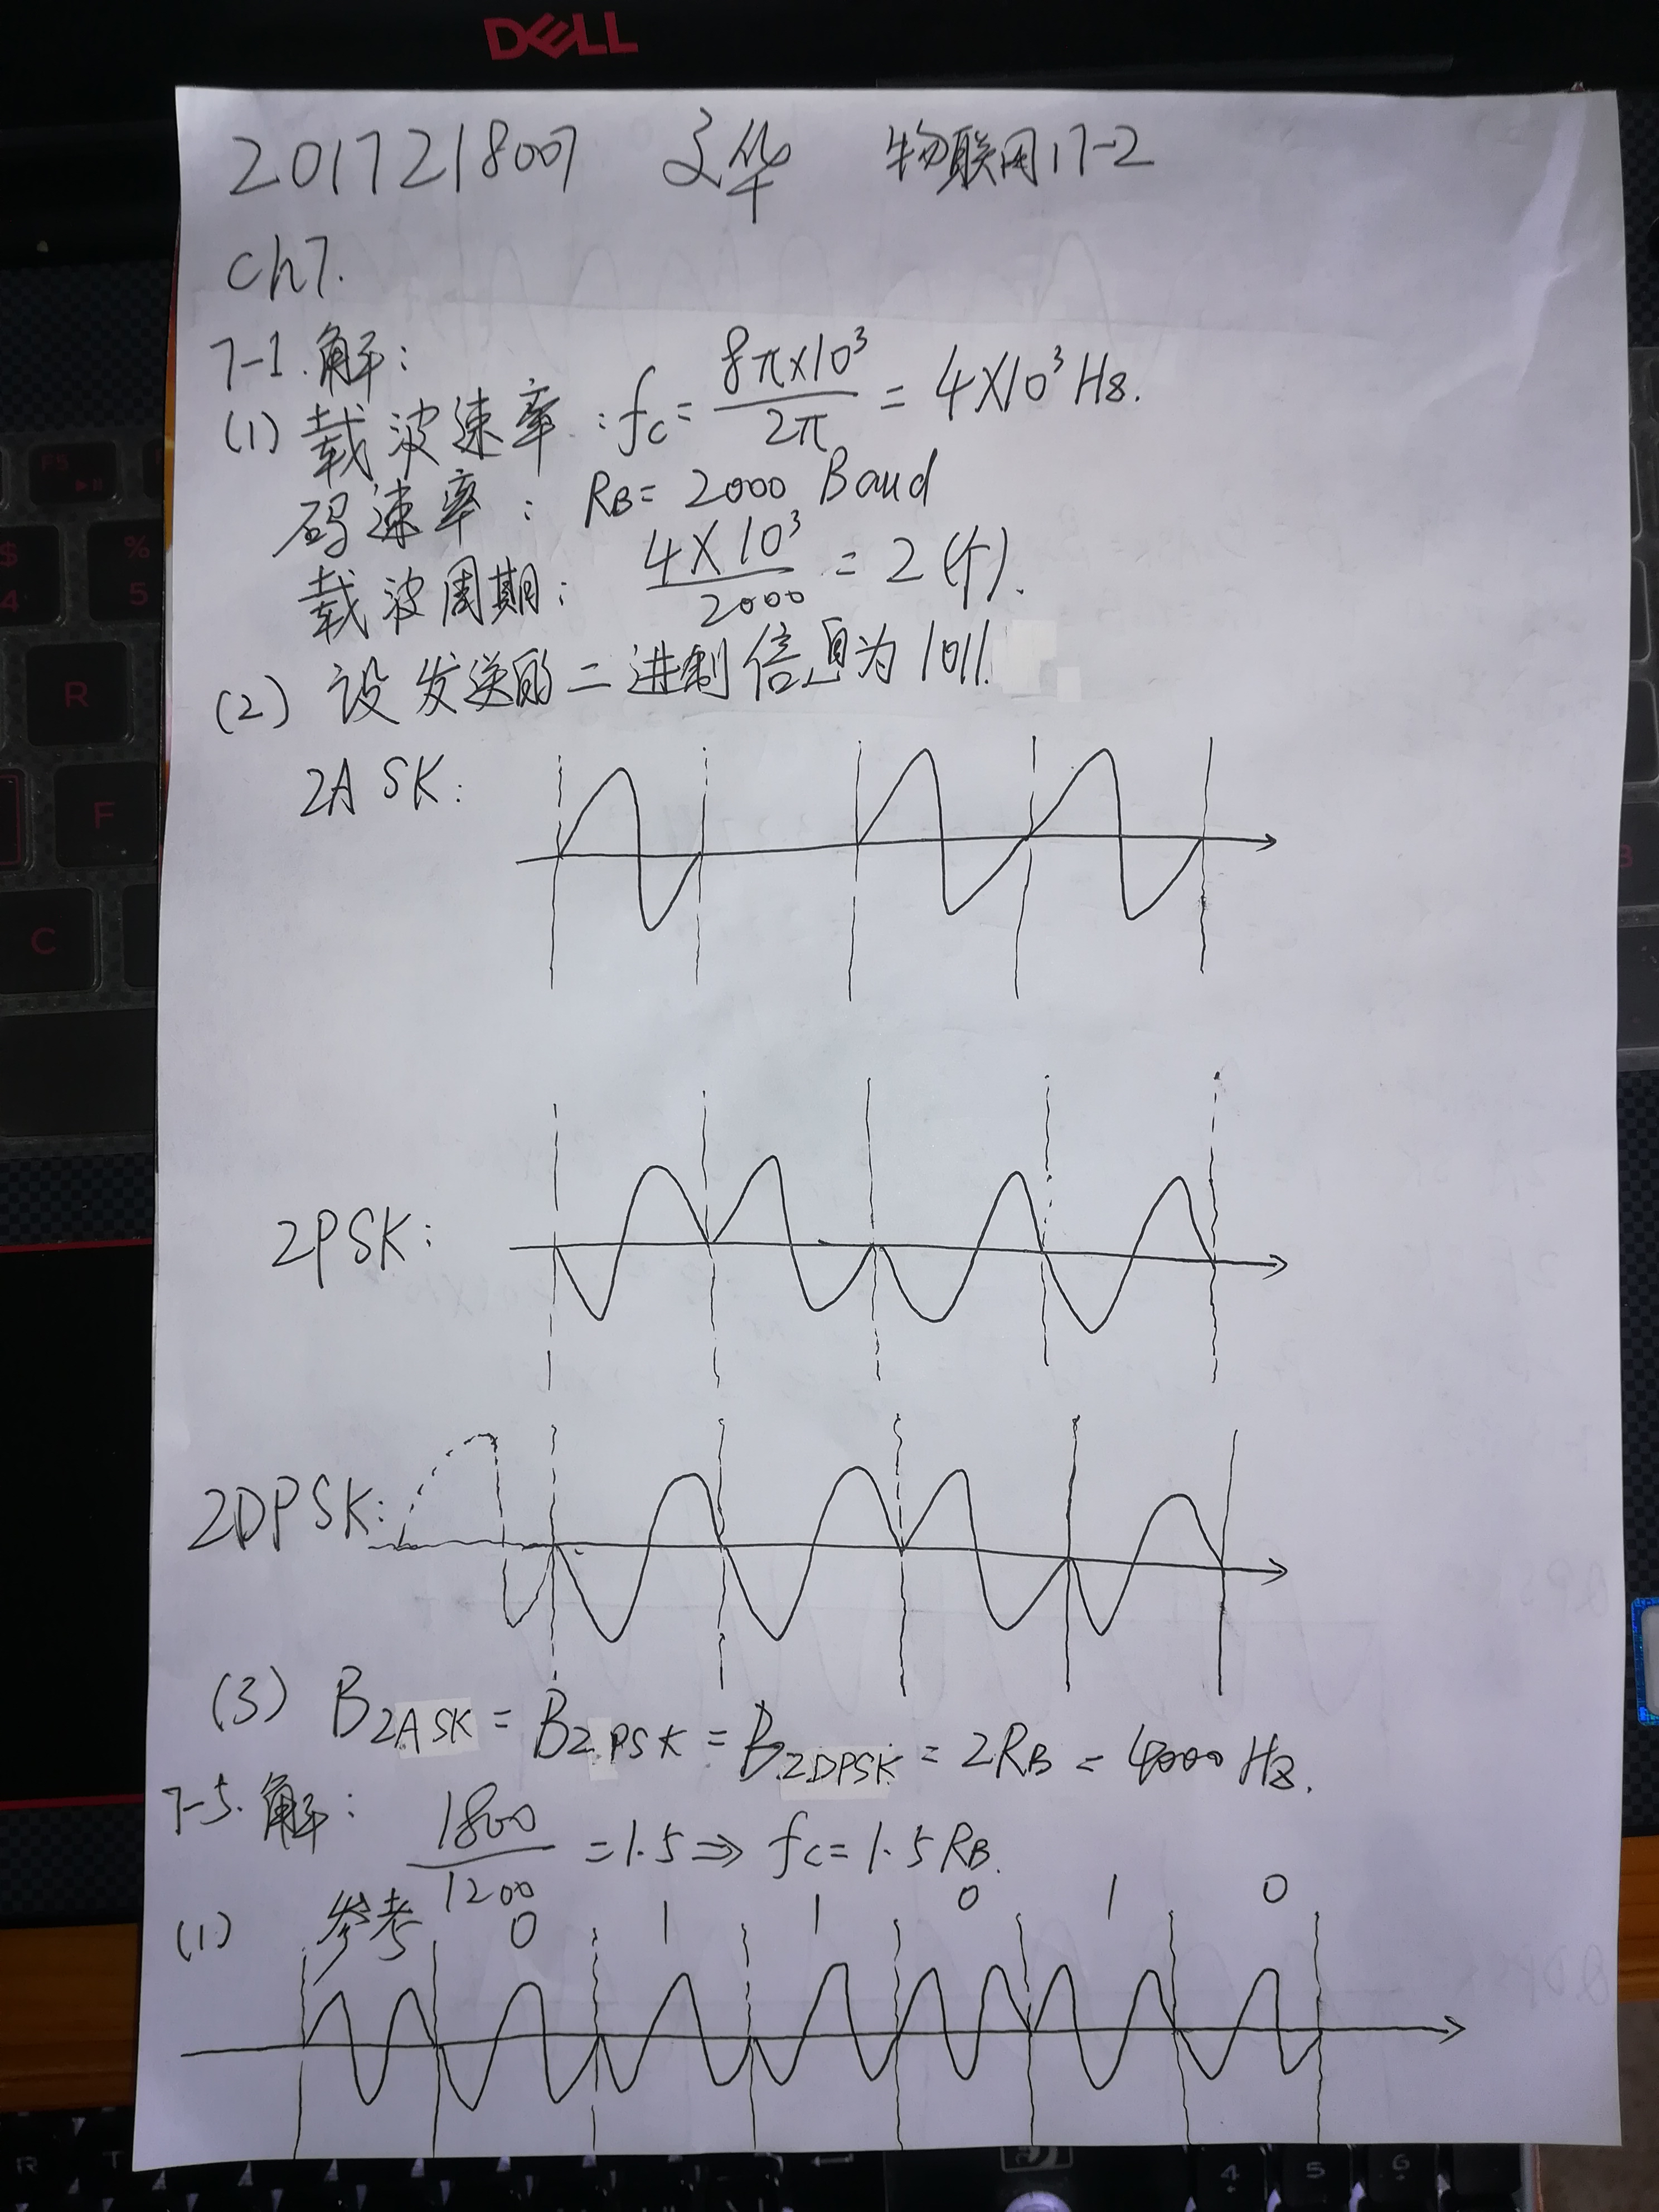 DELL
2017218007 文华 物联网17-2
Ch7.
7-1.解:
(1) 载波速率:fc= 8π×10³/2π = 4×10³Hz.
码速率: RB= 2000 Baud
载波周期: 4×10³/2000 = 2(个).
(2) 设发送的二进制信息为1011.
2ASK:
2PSK:
2DPSK:
(3) B2ASK = B2PSK = B2DPSK = 2RB = 4000 Hz.
7-5.解: 1800/1200 =1.5⇒ fc=1.5RB.
(1) 参考 0 1 1 0 1 0
F5
$ 4
% 5
R
F
C
R T
4 5 6